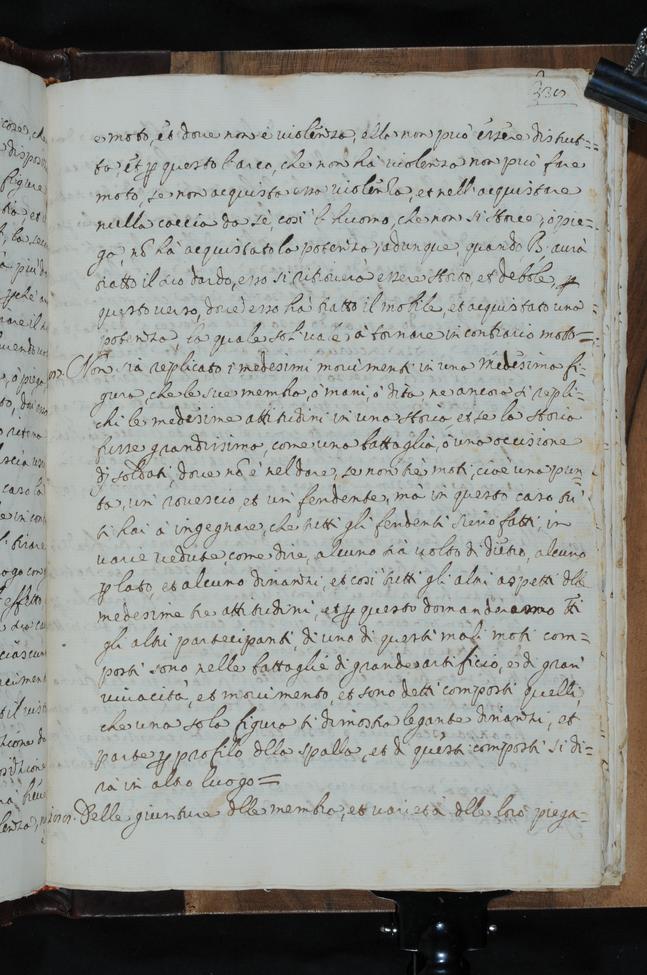 e moto, et doue non è uiolenza, ella non può essere distrut=
ta et p questo l'arco, che non ha uiolenza non può fare
moto, se non acquista essa uiolenza, et nell'acquistare
nulla caccia da sé, così l'huomo, che non si storce, ò pie=
ga, nõ ha acquistato la potenza, adunque, quando B. aurà
tratto il suo dardo, esso si ritrouera essere storto, et debole, p
questo uerso, doue esso ha tratto il mobile, et acquistato una
potenza, la quale sol uale à tornare in contrario moto=
Non sia replicato i medesimi mouimenti in una medesima fi=
gura, che le sue membra, ò mani, ò dita ne ancora si repli=
chi le medesime attitudini in una storia et se la storia
fusse grandissima, come una battaglia, ò una occisione
di soldati, doue nõ è nel dare, se non tre moti, cioè una pun=
ta, un rouescio, et un fendente, mà in questo caso tu
ti hai à ingegnare, che tutti gli fendenti sieno fatti, in
uarie uedute, come dire, alcuno sia uolto di dietro, alcuno
p lato, et alcuno dinanzi, et così tutti gli altri aspetti dlle
medesime tre attitudini, et p questo domanderemo tti
gli altri partecipanti, di uno di questi mà li moti com=
posti sono nelle battaglie di grande artificio, e di gran
uiuacità, et mouimento, et sono detti composti quelli,
che una sola figura ti dimostra le gambe dinanzi, et
parte p profilo dlla spalla, et di questi composti si di=
rà in altro luogo=
Delle giunture dlle membra, et uarietà dlle loro piega=